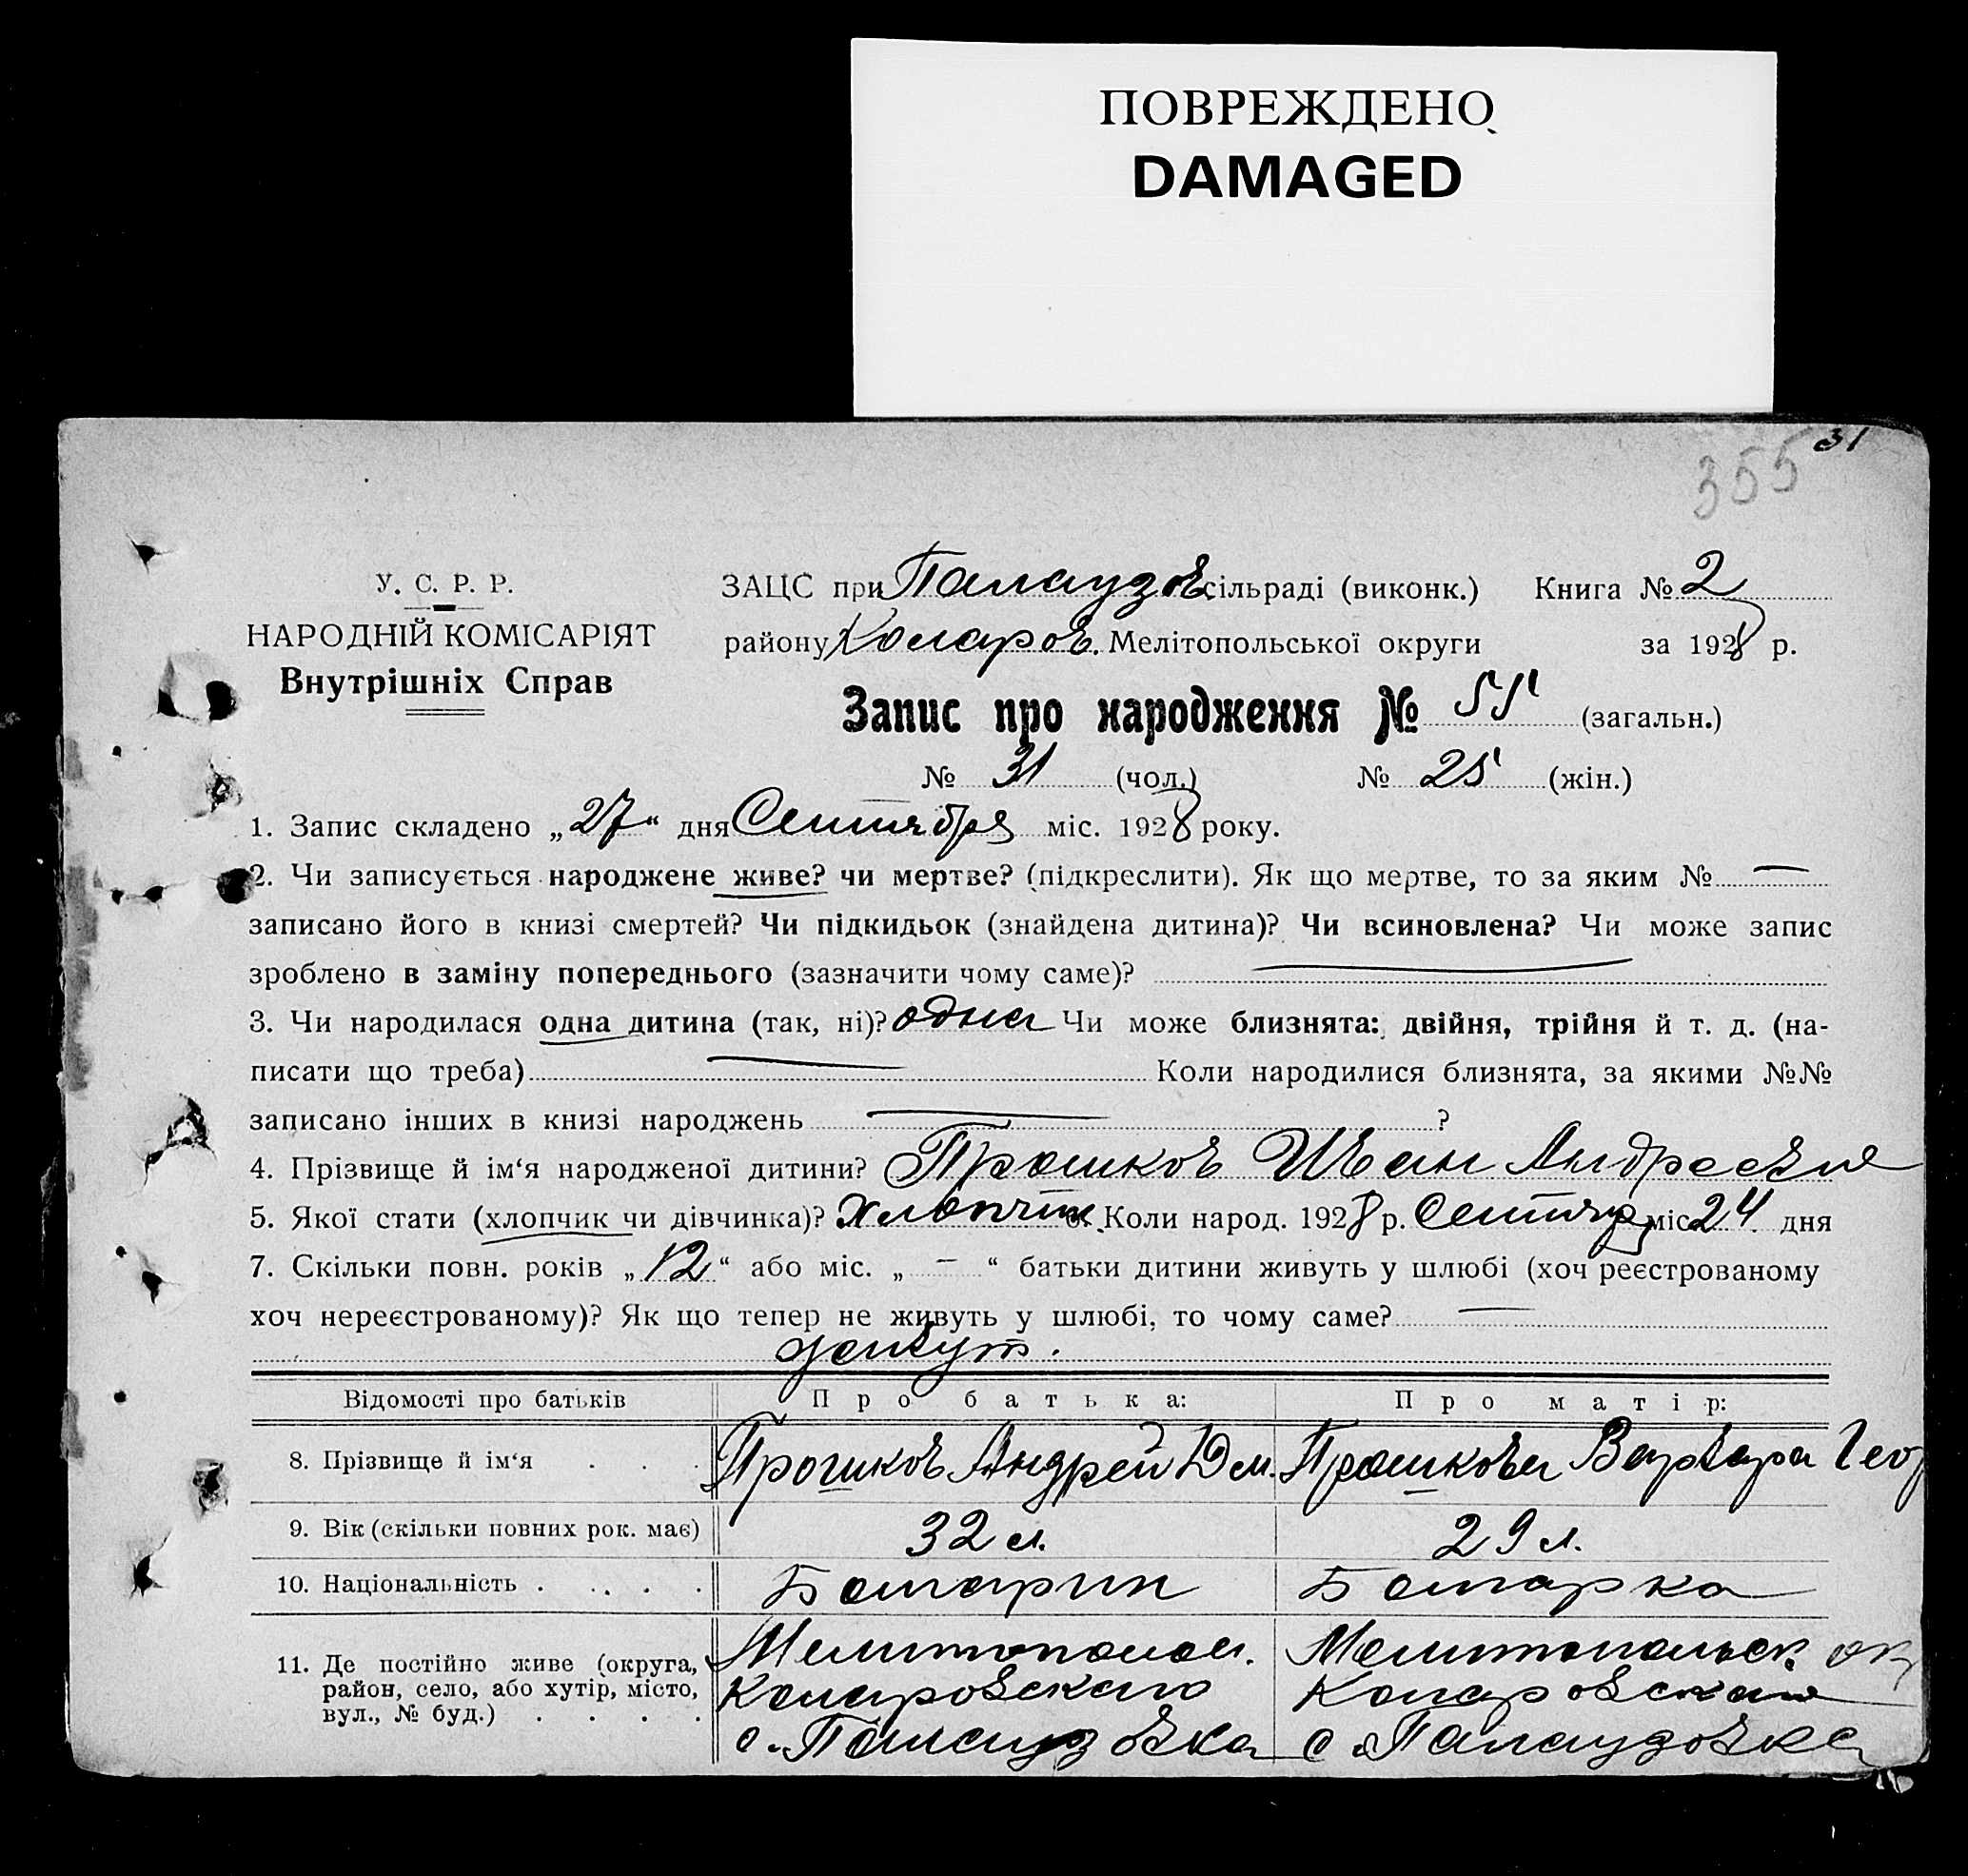 ПОВРЕЖДЕНО
DAMAGED
31
355
У. С. Р. Р.
НАРОДНІЙ КОМІСАРІЯТ
Внутрішніх Справ
ЗАЦС при Палаузов. сільраді (виконк.) Книга № 2
району Коларов. Мелітопольської округи за 1928 р.
Запис про народження № 55 (загальн.)
№ 31 (чол.) № 25 (жін.)
1. Запис складено „27“ дня Сентября міс. 1928 року.
2. Чи записується народжене живе? чи мертве? (підкреслити). Як що мертве, то за яким № —
записано його в книзі смертей? Чи підкидьок (знайдена дитина)? Чи всиновлена? Чи може запис
зроблено в заміну попереднього (зазначити чому саме)? —
3. Чи народилася одна дитина (так, ні)? одна Чи може близнята: двійня, трійня й т. д. (на-
писати що треба) — Коли народилися близнята, за якими №№
записано інших в книзі народжень — ?
4. Прізвище й ім‘я народженої дитини? Прошков Иван Андреевич
5. Якої стати (хлопчик чи дівчинка)? Хлопчик 6. Коли народ. 1928 р. Сентяр міс 24 дня
7. Скільки повн. років „12“ або міс. „ — “ батьки дитини живуть у шлюбі (хоч реєстрованому
хоч нереєстрованому)? Як що тепер не живуть у шлюбі, то чому саме? —
живут.
Відомості про батьків Про батька: Про матір:
8. Прізвище й ім‘я . . . Прошков Андрей Дм. Прошкова Варвара Геор
9. Вік (скільки повних рок. має) 32 л. 29 л.
10. Національність . . . . . Болгарин Болгарка
11. Де постійно живе (округа, Мелитопольск. Мелитопольск. ок
район, село, або хутір, місто, Коларовского Коларовского
вул., № буд.) . . . . с. Палаузовка с. Палаузовка